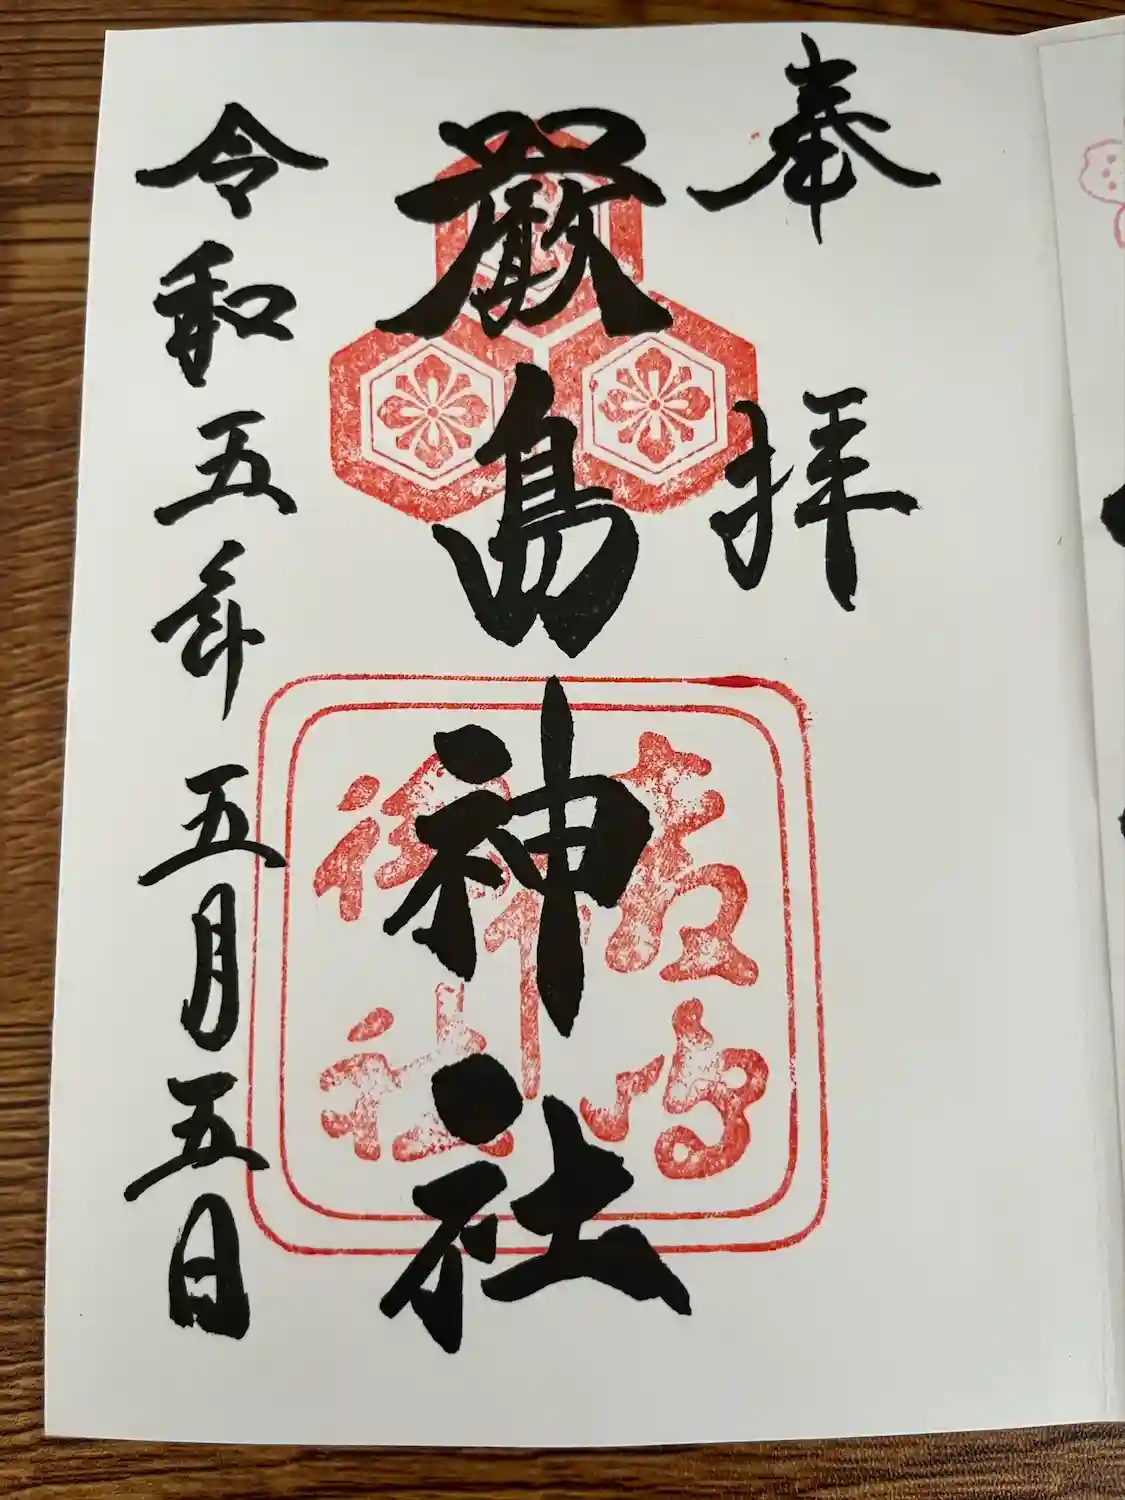 奉拝
厳島神社
令和五年五月五日
厳島
神社